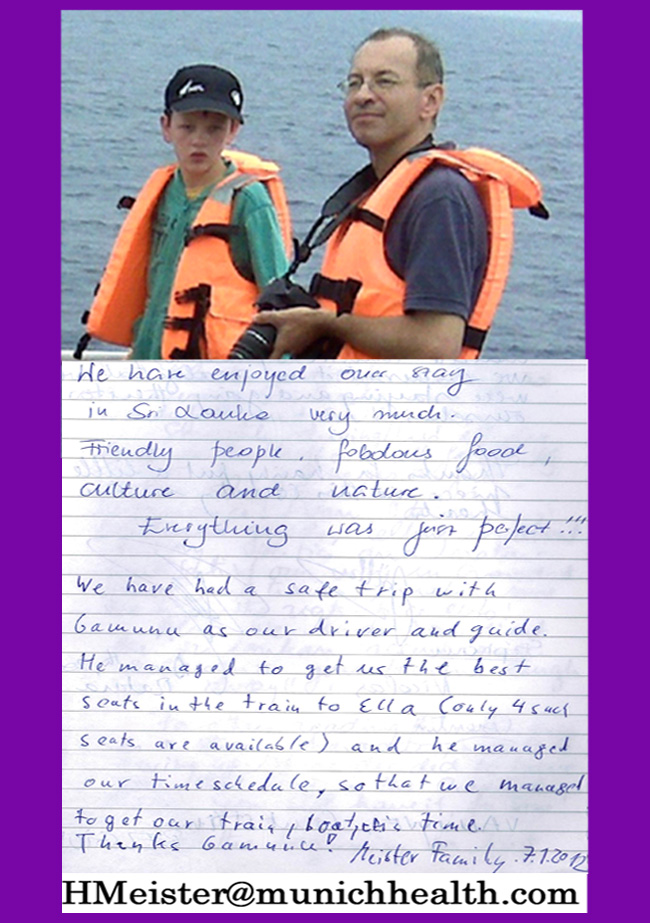 We have enjoyed our stay
in Sri Lanka very much.
Friendly people, fabolous food,
culture and nature.
Everything was just perfect!!!
We have had a safe trip with
Gamunu as our driver and guide.
He managed to get us the best
seats in the train to Ella (only 4 such
seats are available) and he managed
our timeschedule, so that we managed
to get our train, boat, in time.
Thanks Gamunu! Meister Family. 7.1.2012
HMeister@munichhealth.com